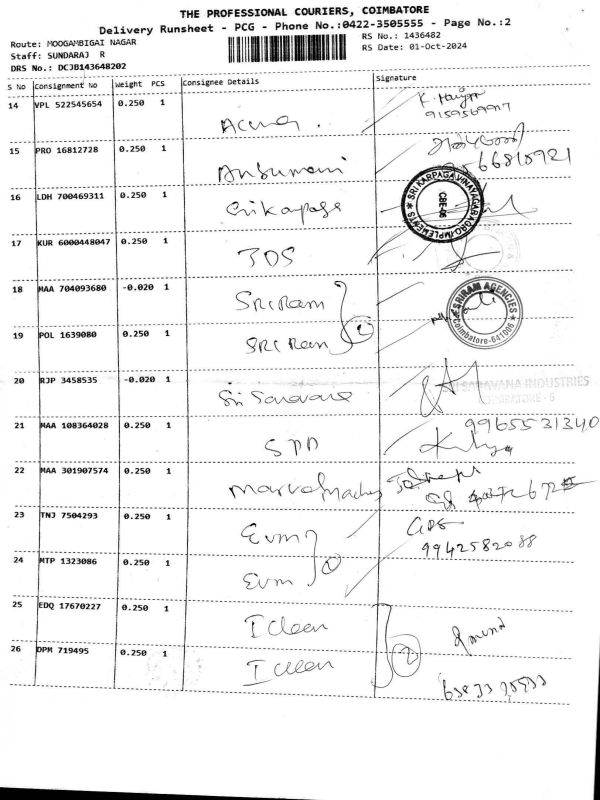 THE PROFESSIONAL COURIERS, COIMBATORE
Delivery Runsheet - PCG - Phone No.:0422-3505555 - Page No.:2
Route: MOOGAMBIGAI NAGAR RS No.: 1436482
Staff: SUNDARAJ R RS Date: 01-Oct-2024
DRS No.: DCJB143648202
S No Consignment No Weight PCS Consignee Details Signature
14 VPL 522545654 0.250 1
9159569917
15 PRO 16812728 0.250 1
9566815921
16 LDH 700469311 0.250 1 Srikarpaga
SRI KARPAGA VINAYAGAR AGRO IMPLEMENTS CBE-06
17 KUR 6000448047 0.250 1 JDS
18 MAA 704093680 -0.020 1 SRIRam
SRIRAM AGENCIES Coimbatore-641006
19 POL 1639080 0.250 1 SRIRam
20 RJP 3458535 -0.020 1 Sri Saravana
SRI SARAVANA INDUSTRIES
COIMBATORE - 6
21 MAA 108364028 0.250 1 SPD
9965531340
22 MAA 301907574 0.250 1
23 TNJ 7504293 0.250 1 Evm
9942582088
24 MTP 1323086 0.250 1 Evm
25 EDQ 17670227 0.250 1 I Clean
2
26 DPM 719495 0.250 1 I Clean